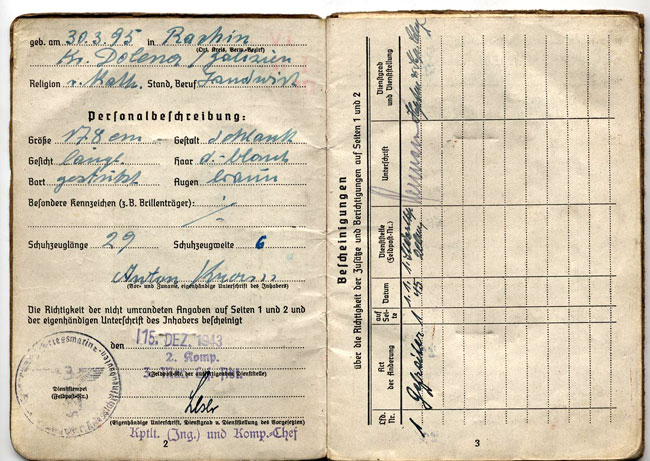 geb. am 30.3.95 in Raskin
(Ort, Kreis, Verw.-Bezirk)
Kr. Dolena / Galizien
Religion r. Kath. Stand, Beruf Landwirt
Personalbeschreibung:
Größe 178 cm Gestalt schlank
Gesicht längl. Haar d.-blond
Bart gestutzt Augen braun
Besondere Kennzeichen (z. B. Brillenträger):
Schuhzeuglänge 29 Schuhzeugweite 6
Anton
(Vor- und Zuname, eigenhändige Unterschrift des Inhabers)
Die Richtigkeit der nicht umrandeten Angaben auf Seiten 1 und 2 und
der eigenhändigen Unterschrift des Inhabers bescheinigt
den 15. DEZ. 1943
2. Komp.
Dienststempel
(Feldpost-Nr.)
(Eigenhändige Unterschrift, Dienstgrad u. Dienststellung des Vorgesetzten)
Kptlt. (Ing.) und Komp.-Chef
2
Bescheinigungen
über die Richtigkeit der Zusätze und Berichtigungen auf Seiten 1 und 2
Lfd. Nr.
Art der Änderung
auf Seite
Datum
Dienststelle (Feldpost-Nr.)
Unterschrift
Dienstgrad und Dienststellung
1. Gefreiter 1 1.1.45
3